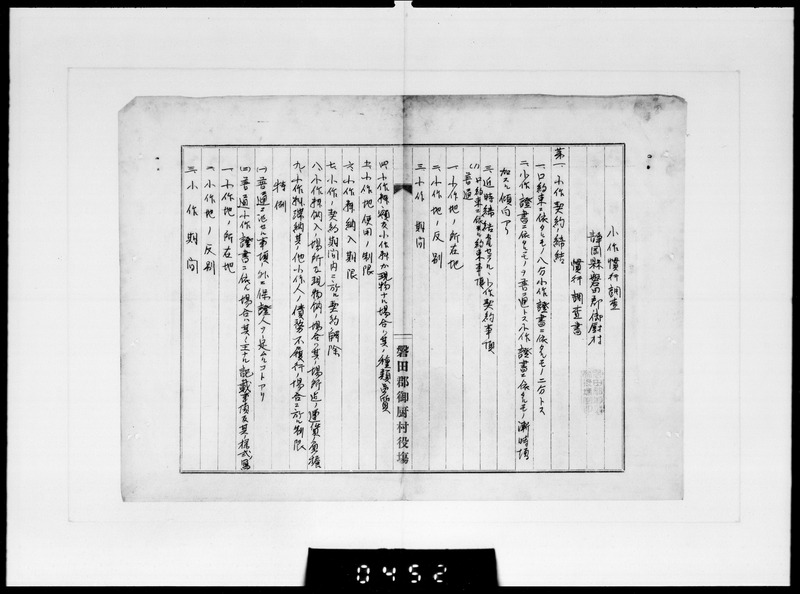 小作慣行調査
静岡縣磐田郡御厨村
慣行調査書
第一、小作契約締結
一、口約束ニ依タルモノ八分小作證書ニ依タルモノ二分トス
二、小作證書ニ依タルモノヲ普通トス小作證書ニ依タルモノ漸時
加スル傾向アリ
三、近時締結セラルル小作契約事項
(1)口約束ニ依ル約束事項
普通
一、小作地ノ所在地
二、小作地ノ反別
三、小作期間
四、小作料額及小作料カ現物ナル場合ハ其ノ種類品質
五、小作地使用ノ制限
六、小作料納入期限
七、小作ノ契約期間内ニ於ル契約解除
八、小作料納入場所及現物納ノ場合ハ其ノ場所迄ノ運賃負擔
九、小作料滯納其ノ他小作人ノ債務不履行ノ場合ニ於ル制限
特例
(1)普通ニ記セル事項ノ外ニ保證人ヲ定ムルコトアリ
(2)普通小作證書ニ依ル場合ハ其ノ主ナル記載事項及其様式
一、小作地ノ所在地
二、小作地ノ反別
三、小作期間
磐田郡御厨村役場
0452